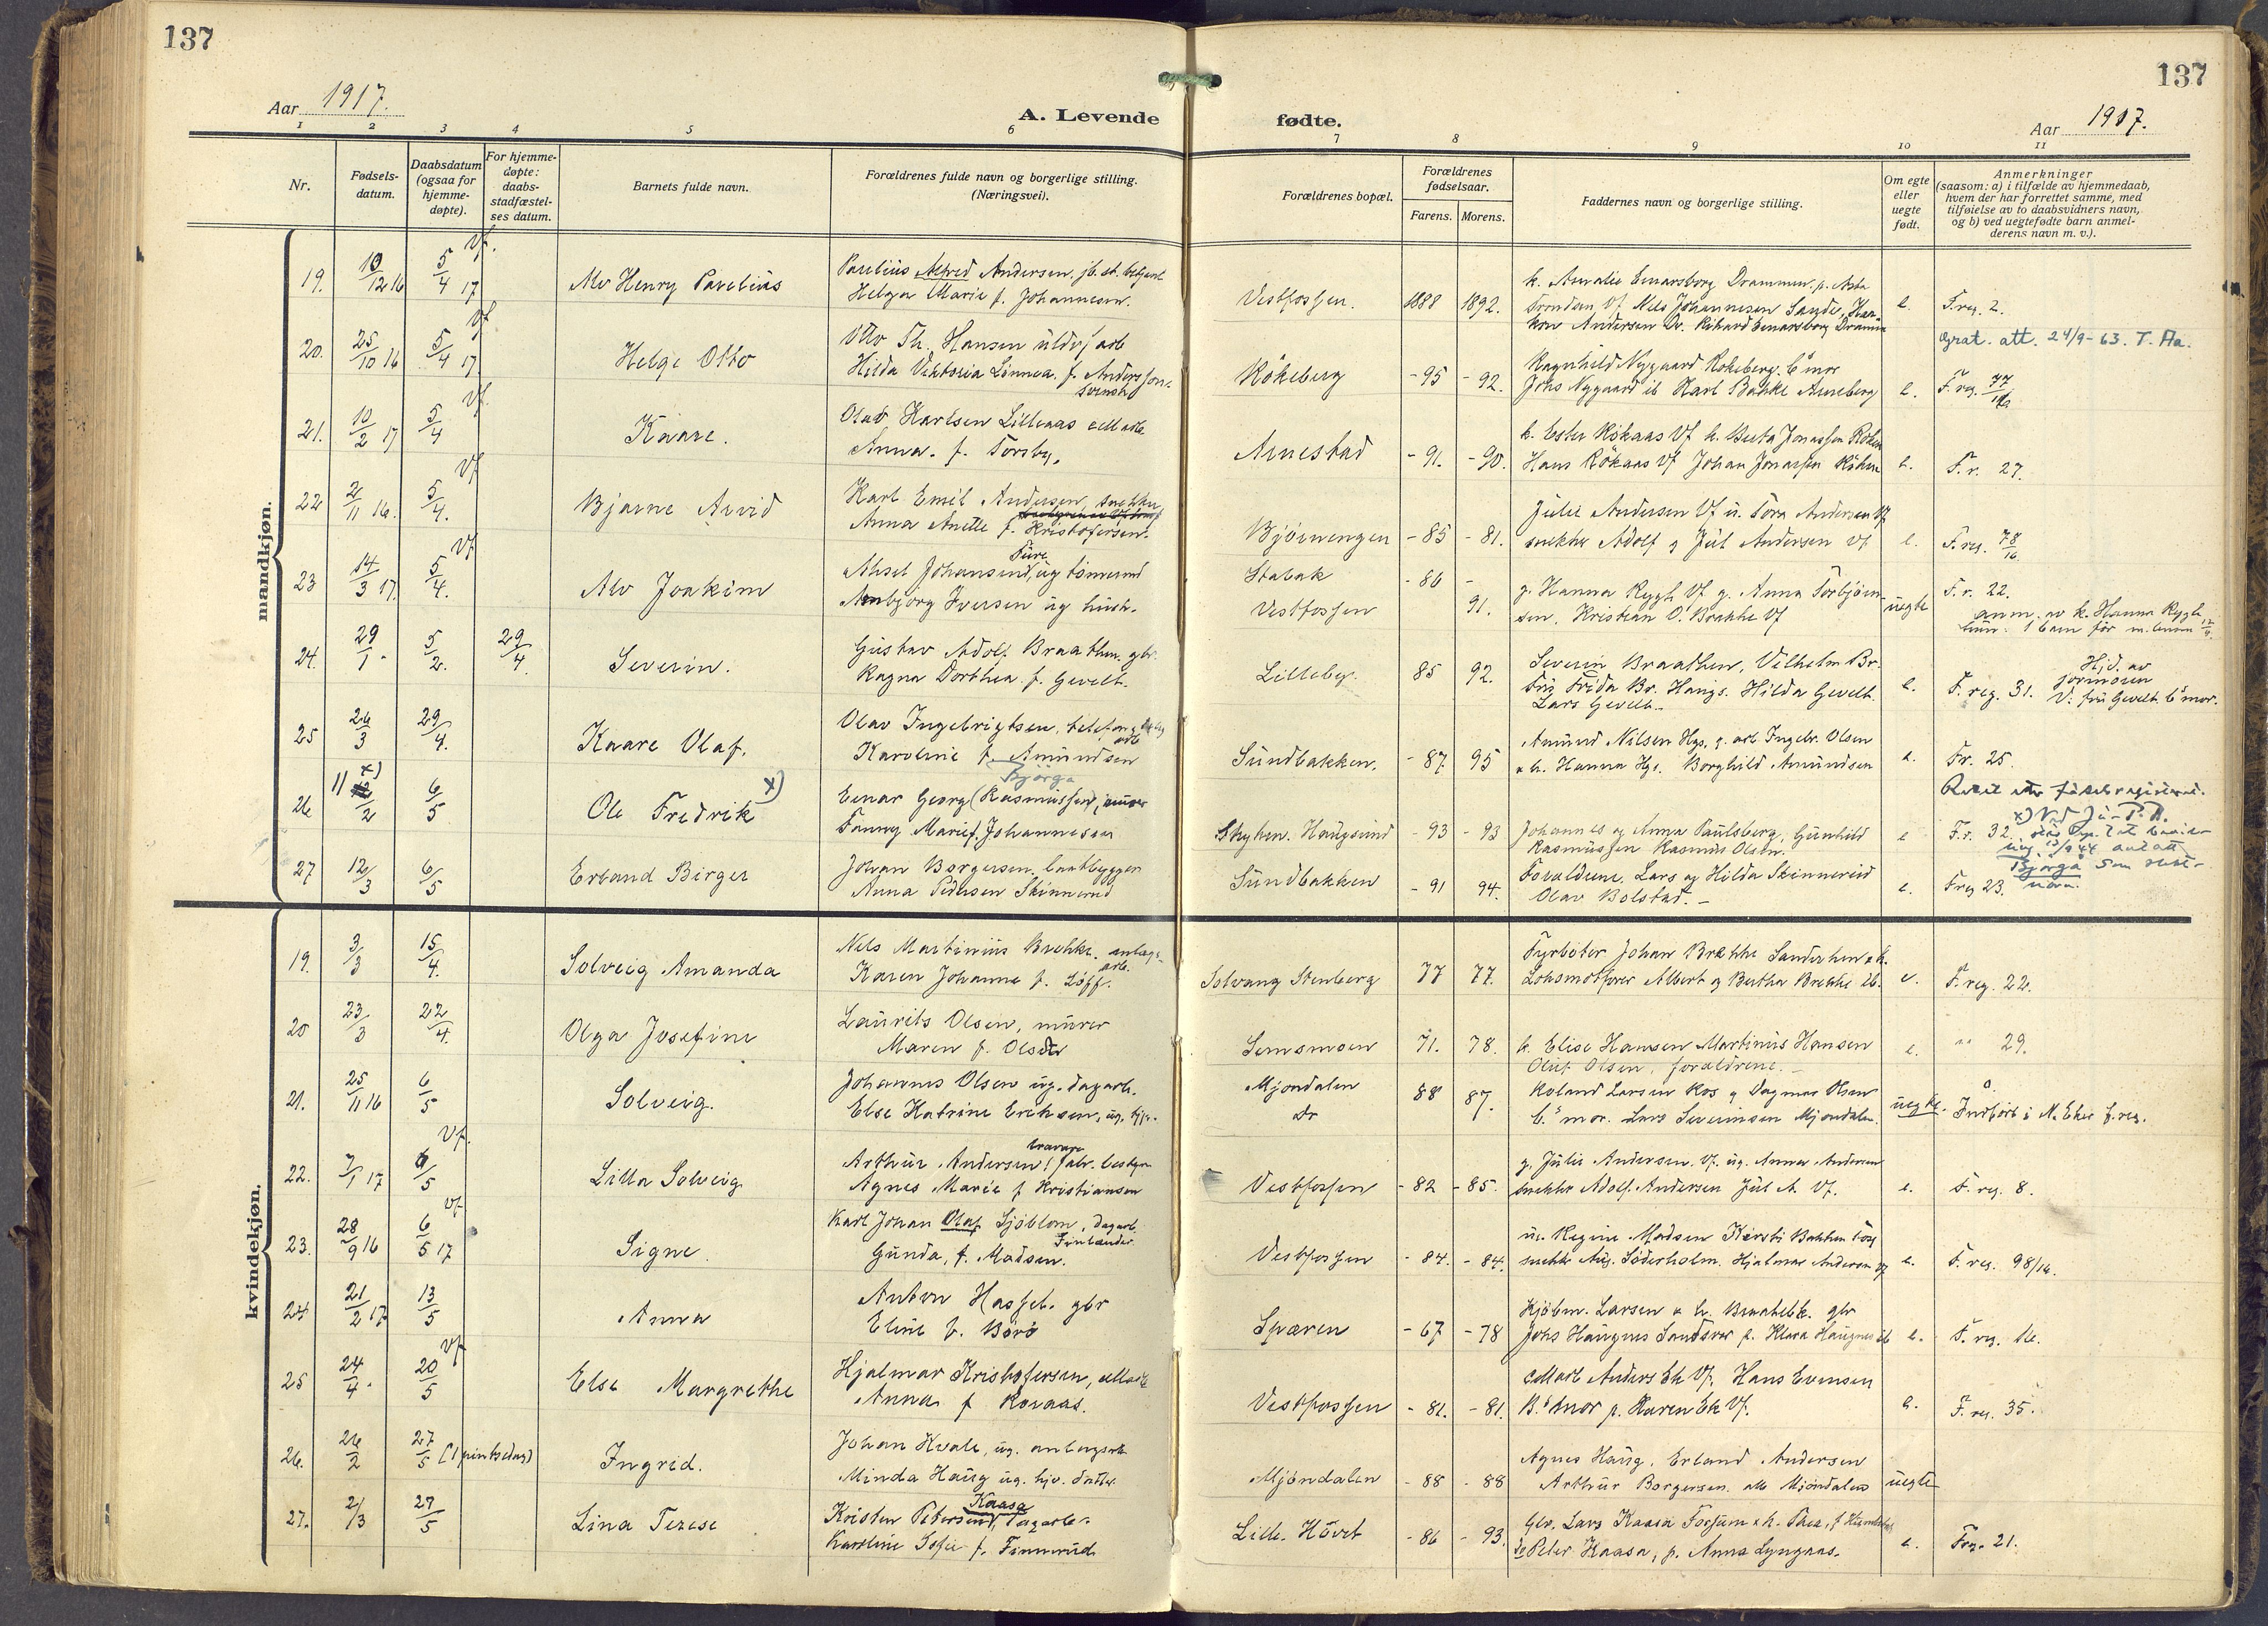 137
137
Aar 1917.
A. Levende
fødte.
Aar 1917.
1 2 3 4 5 6 7 8 9 10 11
Nr.
Fødsels-
datum.
Daabsdatum
(ogsaa for
hjemme-
døpte).
For hjemme-
døpte:
daabs-
stadfæstel-
ses datum.
Barnets fulde navn.
Forældrenes fulde navn og borgerlige stilling.
(Næringsvei).
Forældrenes bopæl.
Forældrenes
fødselsaar.
Farens. Morens.
Faddernes navn og borgerlige stilling.
Om egte
eller
uegte
født.
Anmerkninger
(saasom: a) i tilfælde av hjemmedaab,
hvem der har forrettet samme, med
tilføielse av to daabsvidners navn,
og b) ved uegtefødte barn anmel-
derens navn m. v.).
mandkjøn.
19. 10/12 16 5/4 17 Vf. Alv Henry Parelius
Parelius Alfred Andersen, jb. st. betjent
Helga Marie f. Johannesen.
Vestfossen. 1888 1892.
Drammen, p. Asta
Vf. Nils Johannesen Sande,
Andersen Dr. Rikard Einarsborg Dramm
e. F. reg. 2.
20. 25/10 16 5/4 17 Vf Helge Otto
Otto Th. Hansen uldvf arb
Hilda Viktoria Linnea. f. Andersson
svensk
Røkeberg - 95 - 92.
Ragnhild Nygaard Røkeberg. b mor
Johs Nygaard ib Karl Bakke Arneberg
e. F. reg. 77/16
Grat. att. 24/9-63. T. Aa.
21. 10/2 17 5/4 Vf Kaare.
Olav Karlsen Lilleaas cell arb
Anna. f. Torsby.
Arnestad - 91. - 90.
k. Ester Røkaas Vf k. Berta Jonassen Røken
Hans Røkaas Vf Johan Jonassen Røken
e. F. r. 27.
22 2/11 16. 5/4. Vf Bjarne Arvid
Karl Emil Andersen, snekker
Anna Anette f. Kristofersen.
Bjørnengen - 85 - 81.
Julie Andersen Vf u. Tora Andersen Vf
snekker Adolf g Jul Andersen Vf
e. F. reg. 78/16
23 14/3 17. 5/4. Vf Alv Joakim
Aksel Johansen Ture, ug tømmerm
Arnbjørg Iversen ug hush.
Stabak - 86 -
Vestfossen 91.
g. Hanna Rygh Vf g. Anna Torbjørn-
sen. Kristian O. Brekke Vf
uegte F. r. 22.
anm. av k. Hanna Rygh
24. 29/1. 5/2. 29/4. Severin.
Gustav Adolf Braathen. gbr.
Ragna Dorthea f. Gevelt.
Lilleby. 85 92.
Severin Braathen, Vilhelm Br.
Frida Br. Haugs. Hilda Gevelt
Lars Gevelt.-
e. F. reg. 31.
Hjd. av
jormoren
V. fru Gevelt. b mor.
25 26/3 29/4. Kaare Olaf.
Olav Ingebrigtsen, telefon
arb
Karoline f. Amundsen
Sundbakken. - 87 95
Amund Nilsen Hgs. g. arb Ingebr. Olsen
& h. Hanna Hgs. Borghild Amundsen
e. Fr. 25.
26 11/2 x) 6/5 Ole Fredrik x)
Bjørgå
Einar Georg (Rasmussen), murer
Fanny Marie f. Johannessen
Skyhen. Haugsund - 93 - 93
Johannes og Anna Paulsberg, Gunhild
Rasmussen Rasmus Olsen.
e F. r. 32.
Rettet etter fødselsregisteret.
x) Ved Ju-P. D.
13/9 44 antatt
Bjørgå som slekts-
navn.
27 12/3 6/5 Erland Birger
Johan Borgersen, baatbygger
Anna Pedersen Skinnerud
Sundbakken - 91 94.
Forældrene, Lars og Hilda Skinnerud
Olav Bolstad. -
e. F reg 23.
kvindekjøn.
19. 3/3 15/4. Solveig Amanda
Nils Martinius Brekke. anlægs-
arb.
Karen Johanne f. Løff.
Solvang Stenberg 77 77.
Fyrbøter Johan Brekke Sanderhen & k.
Lokomotfører Albert g Bertha Brekke ib.
e. F. reg. 22.
20 23/3 22/4. Olga Josefine
Laurits Olsen, murer
Maren f. Olsdtr
Semsmoen 71. 78.
k. Elise Hansen Martinus Hansen
Oluf Olsen, forældrene. -
e. " 29.
21. 25/11 16 6/5 Solveig.
Johannes Olsen ug. dagarb.
Else Katrine Eriksen, ug. tjp.
Mjøndalen 88 87.
do
Roland Larsen Kos g Dagmar Olsen
b.s mor. Lars Severinsen Mjøndalen.
uegte. Indført i N. Eker f. reg.
22. 7/1 17 6/5 Vf. Lilla Solveig
Arthur Andersen, fabr. bestyr
Agnes Marie f Kristiansen
Vestfossen - 82 - 85.
g. Julie Andersen. Vf. ug. Anna Andersen
snekker Adolf Andersen Jul A. Vf.
e. F. reg. 8.
23. 28/9 16 6/5 17 Vf Signe.
Karl Johan Olaf Sjöblom, dagarb.
Finlænder
Gunda, f. Madsen.
Vestfossen - 84. - 84.
ug. Regine Madsen Kirsti Bakken
snekk Aug. Søderholm. Hjalmar Andersen Vf
e. F. reg. 98/16.
24 21/2 17 13/5 Anna
Anton Hassel. gbr
Eline f. Børø
Spæren - 67 - 78
Kjøbm. Larsen & h. Braatebk. gbr
Johs Haugnes Sandsvær p. Klara Haugnes ib
e. F. reg. 16.
25 24/4. 20/5 Vf Else Margrethe
Hjalmar Kristofersen, cellarb
Anna f Rovaas.
Vestfossen - 81. - 81.
cellarb Anders Ek Vf. Hans Evensen
B.s mor p. Karen Ek Vf.
e. F. reg. 35.
26. 26/2 27/5 (1 pinksedag) Ingrid.
Johan Kvale, ug. anlægsarb
Minda Haug ug. hjv. datter
Mjøndalen - 88 - 88
Agnes Haug, Erland Andersen
Arthur Borgersen. alle Mjøndalen
uegte
27. 2/3 27/5 Lina Terese
Kaasa
Kristen Petersen, dagarb.
Karoline Sofie f. Finnerud
Lille. Hôvet - 86 - 93.
Gbr. Lars Kaasa Fossum & h. Thea,
Peter Kaasa, p. Anna Lyngaas.
e. F reg. 21.